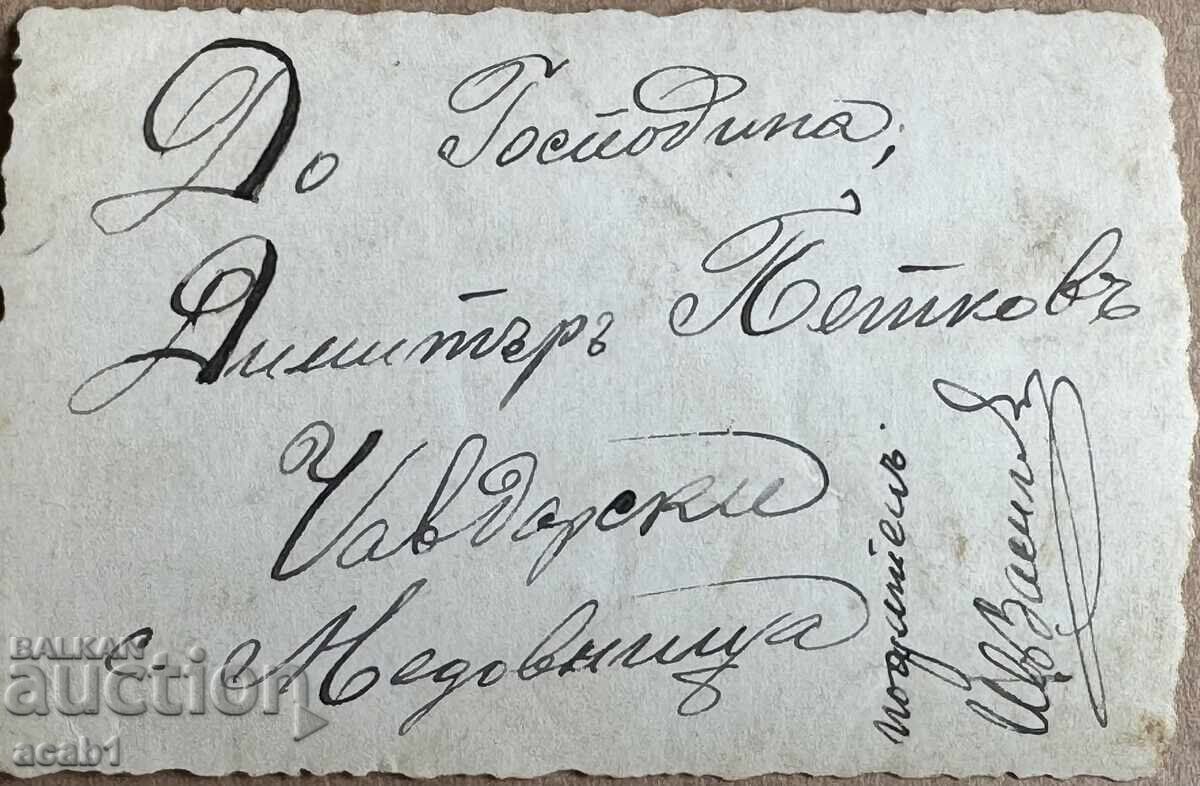 До Господина,
Димитъръ Петковъ
Чавдарски
с. Медовница
подателъ
BALKAN
auction
acab1